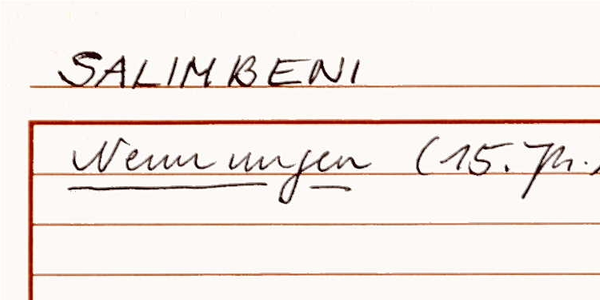 SALIMBENI
Nennungen (15. Jh.)